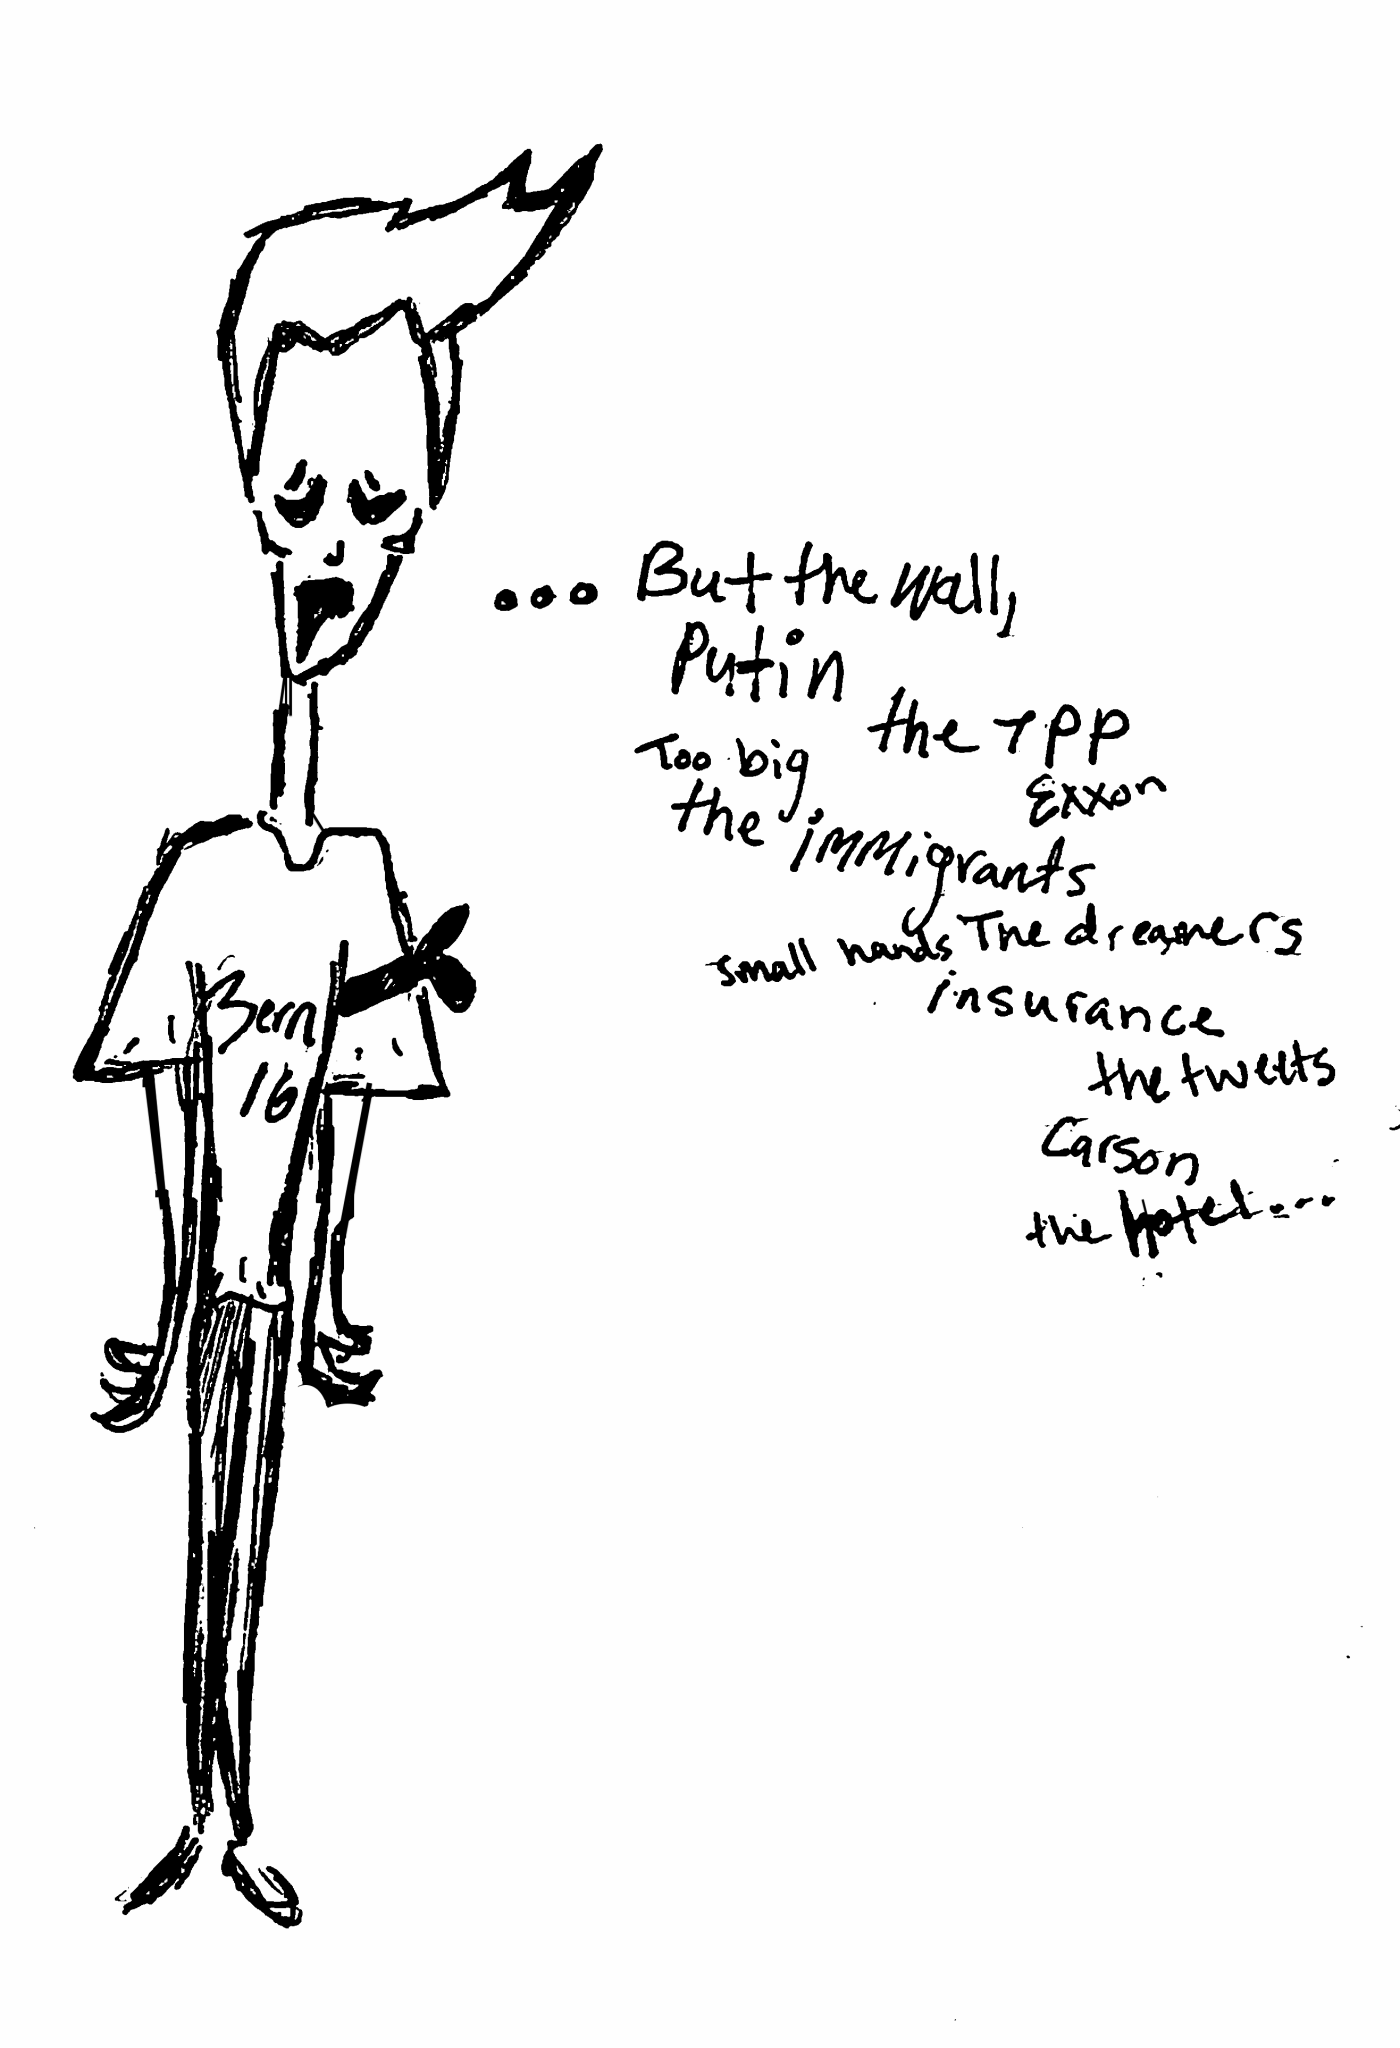 ... But the wall,
Putin
the TPP
Too big
Exxon
the immigrants
The dreamers
small hands
insurance
the tweets
Carson
the Hotel...
Bern
16